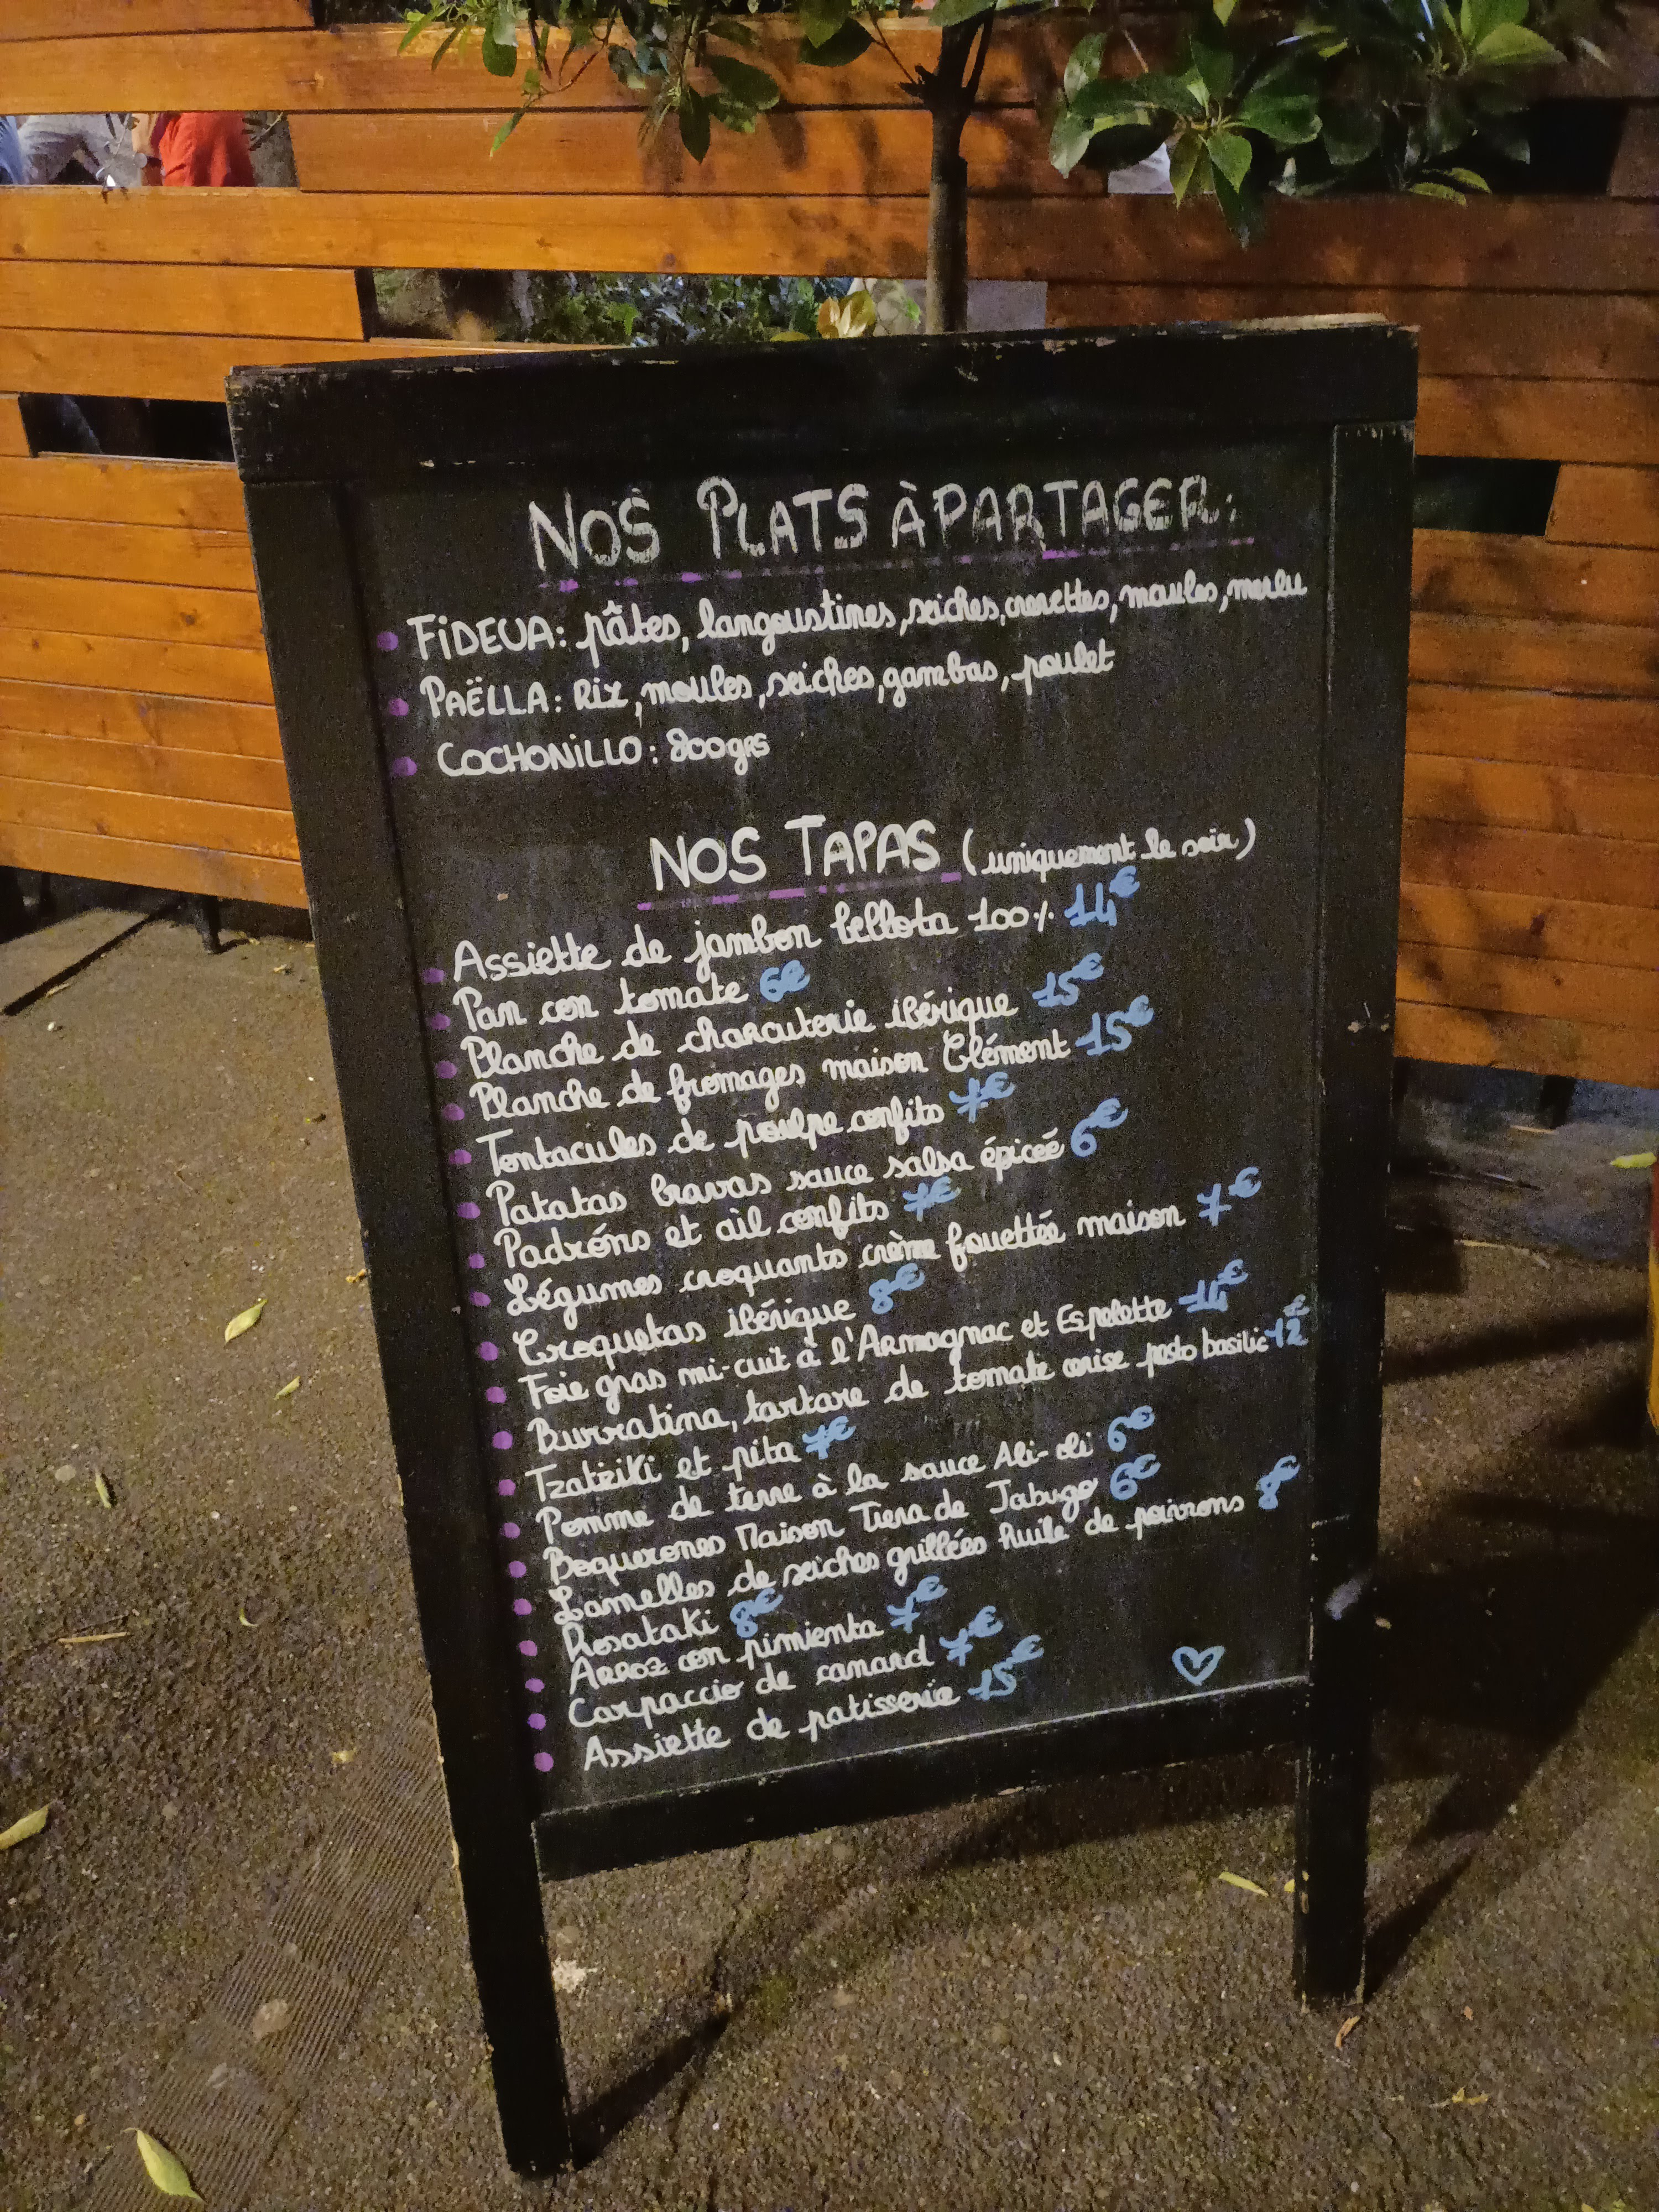 NOS PLATS À PARTAGER:
FIDEUA: pâtes, langoustines, seiches, crevettes, moules, merlu
PAËLLA: Riz, moules, seiches, gambas, poulet
COCHONILLO: 800grs
NOS TAPAS (uniquement le soir)
Assiette de jambon bellota 100% 14€
Pan con tomate 6€
Planche de charcuterie ibérique 15€
Planche de fromages maison Clément 15€
Tentacules de poulpe confits 7€
Patatas bravas sauce salsa épicée 6€
Padróns et ail confits 7€
Légumes croquants crème fouettée maison 7€
Croquetas ibérique 8€
Foie gras mi-cuit à l'Armagnac et Espelette 14€
Burratina, tartare de tomate cerise pesto basilic 12€
Tzatziki et pita 7€
Pomme de terre à la sauce Ali-oli 6€
Boquerones Maison Tiera de Jabugo 6€
Lamelles de seiches grillées huile de poivrons 8€
Rosataki 8€
Arroz con pimienta 7€
Carpaccio de canard 7€
Assiette de patisserie 15€